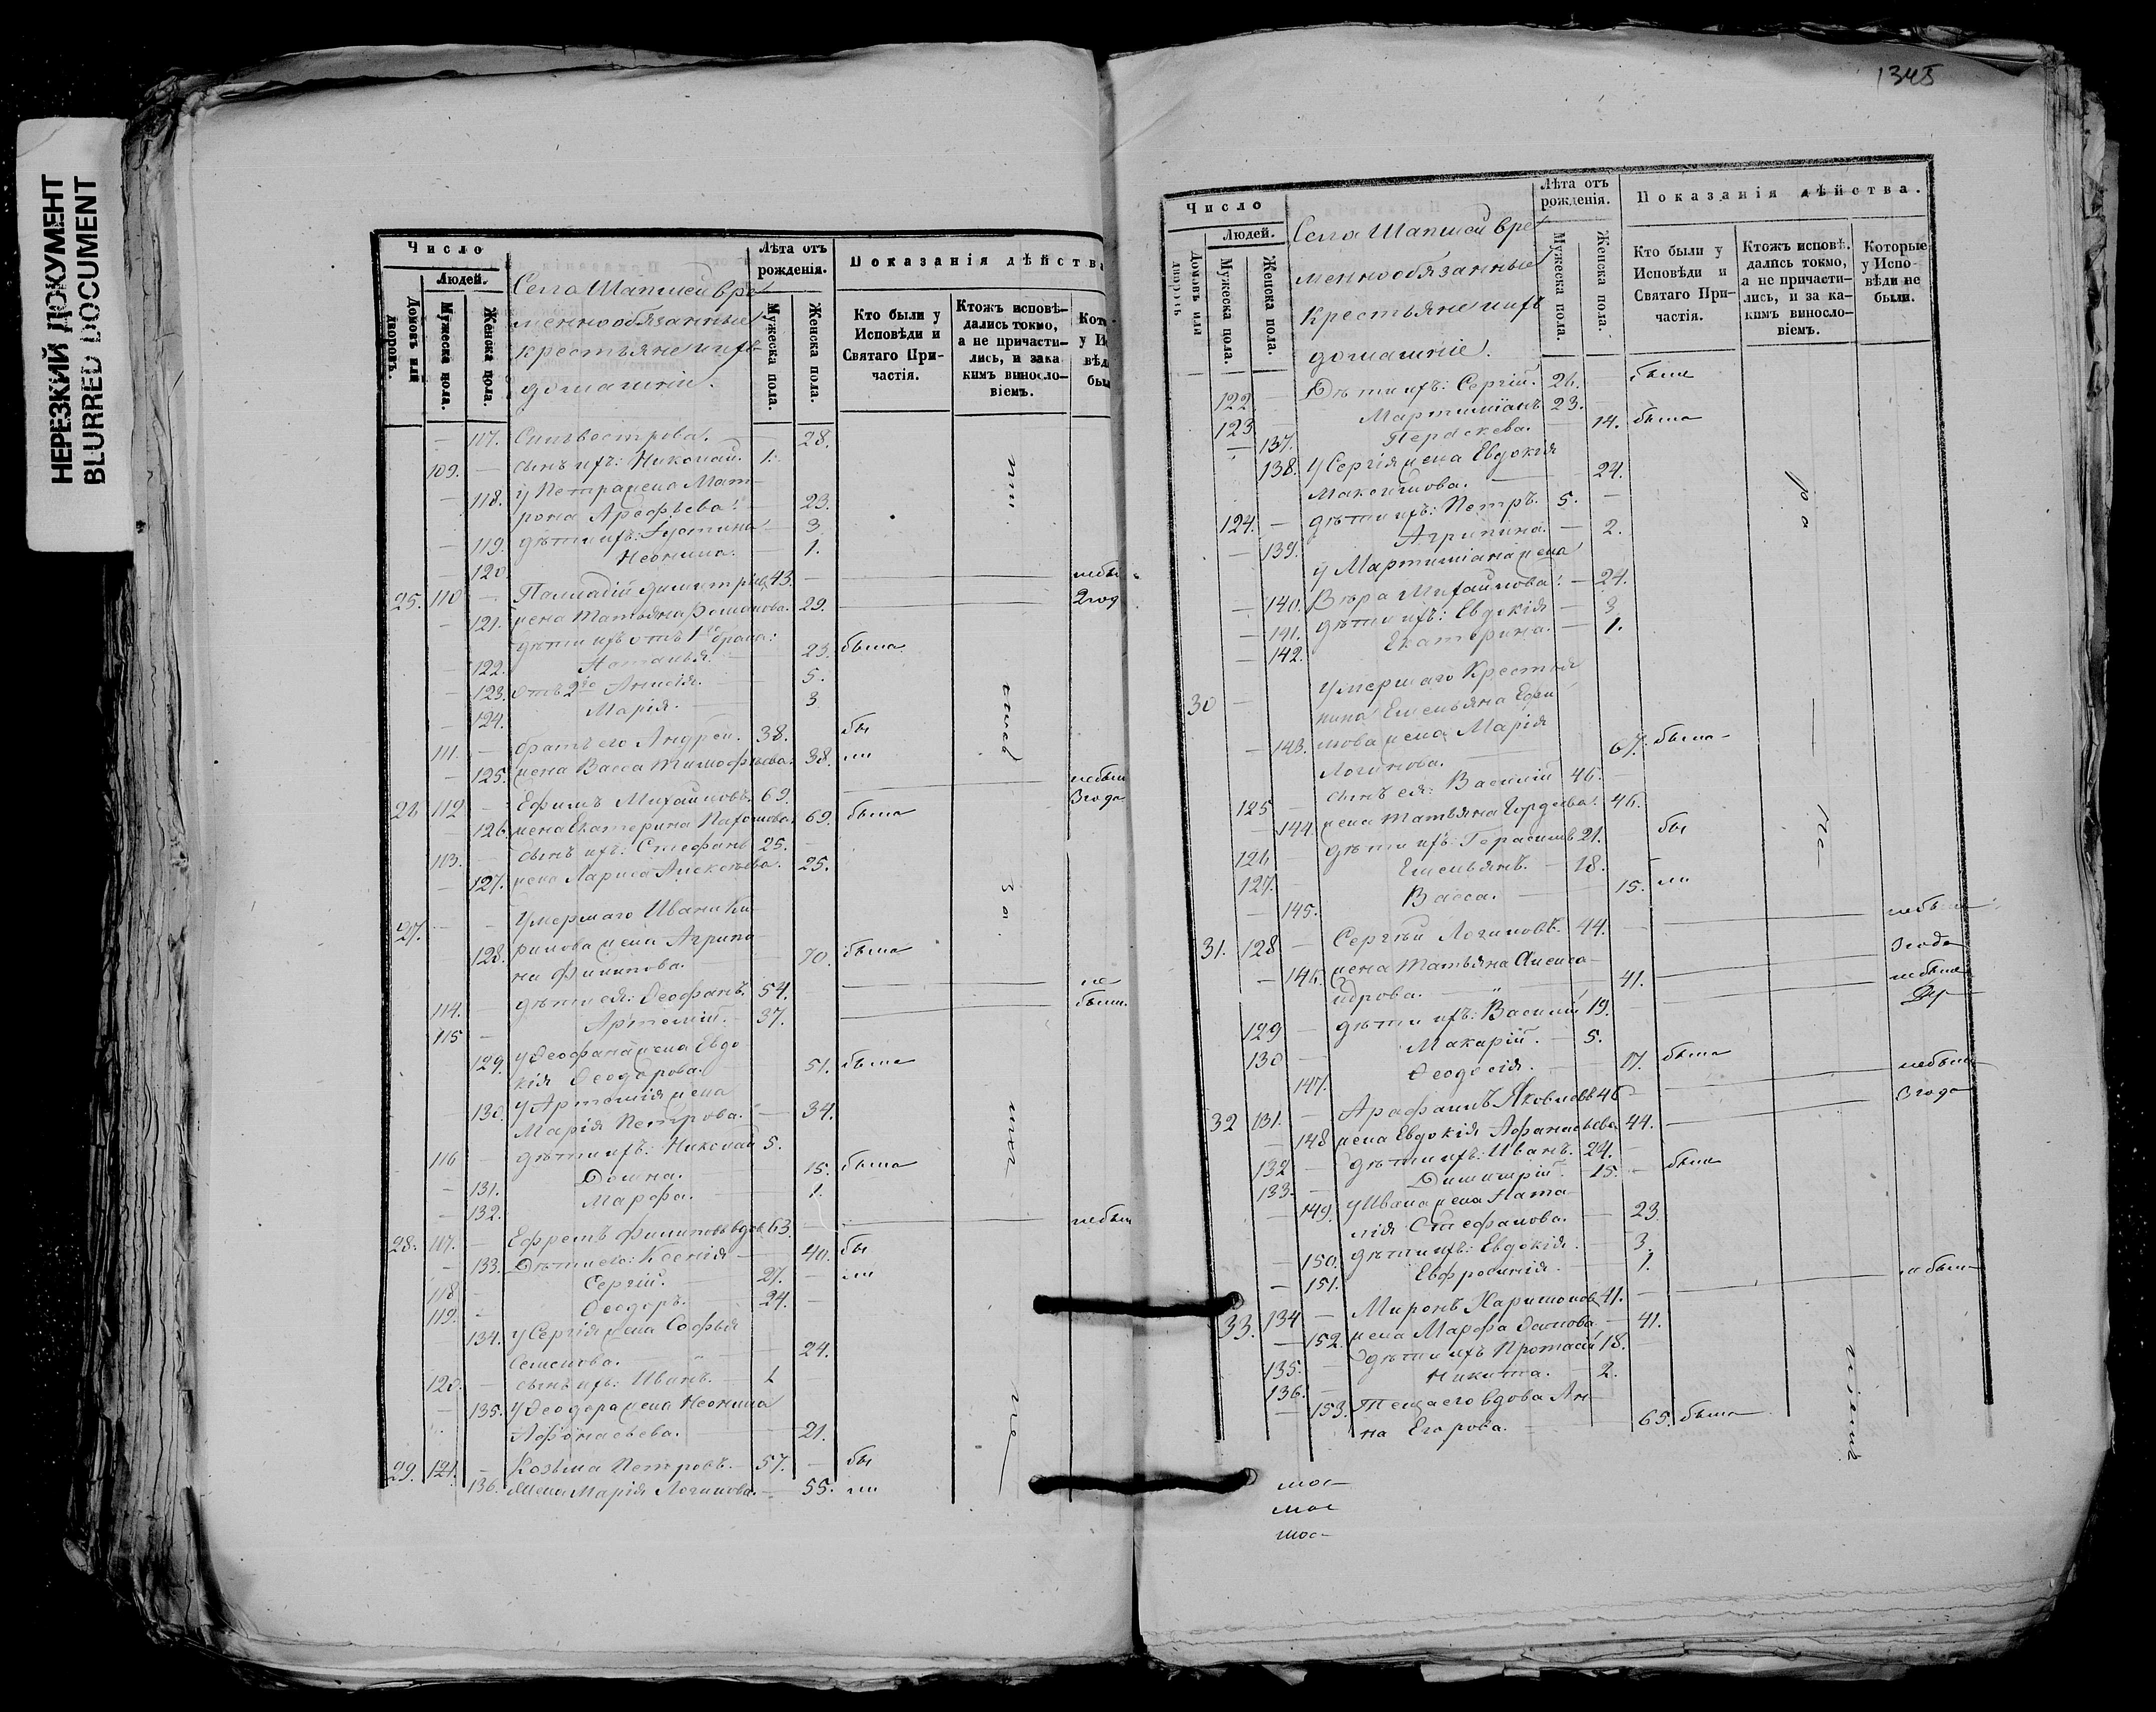 НЕРЕЗКИЙ ДОКУМЕНТ
BLURRED DOCUMENT
Число
Людей.
Домовъ или дворовъ.
Мужеска пола.
Женска пола.
Села Шапшей вре
менно обязанные
крестьяне и ихъ
домашніе.
Лѣта отъ рожденія.
Мужеска пола.
Женска пола.
Показанія дѣйства
Кто были у Исповѣди и Святаго Причастія.
Ктожъ исповѣдались токмо, а не причастились, и за каким винословіемъ.
117. Сильвестрова. 28.
109. — сынъ ихъ: Николай. 1.
118. у Петра жена Мат-
рона Арефьева. 23.
119. дѣти ихъ: Густина 3
120. Неонила. 1.
25. 110 Палладій Димитріевъ 43. — небы
121. жена Татьяна Романова. 29. 2 год
дѣти ихъ отъ 1го брака:
122. Наталья. 23. была
123. отъ 2го Анисія. 5.
124. Марія. 3
111. — братъ его Андрей. 38. бы
125. жена Васса Тимофѣева. 38. ли
26 112 Ефимъ Михайловъ. 69. небыл
126. жена Екатерина Пахомова. 69. была 3 года
113. — сынъ ихъ: Стефанъ 25.
127. жена Лариса Алексѣева. 25.
27. Умершаго Ивана Ки-
128. рилова жена Агрипи-
на Филипова. 70. была
114. дѣти ея: Ѳеофанъ. 54. не
115 Артемій. 37. были.
129. у Ѳеофана жена Евдо
кія Ѳеодорова. 51. была
130. у Артемія жена
Марія Петрова. 34.
116 дѣти ихъ: Николай 5.
131. Домна. 15. была
132. Марѳа. 1.
28. 117. Ефремъ Филиповъ вдов. 63. небыл
133. Дѣти его: Ксенія 40. бы
118 Сергій. 27. ли
119. Ѳеодоръ. 24.
134. у Сергія жена Софья
Семенова. 24.
120. — сынъ ихъ: Иванъ. 1
135. у Ѳеодора жена Неонила
Афонасьева. 21.
29. 121. Козьма Петровъ. 57. бы
136. жена Марія Логинова. 55. ли
1345
Число
Людей.
Домовъ или дворовъ
Мужеска пола.
Женска пола.
Села Шапшей вре
менно обязанные
крестьяне и ихъ
домашніе.
Лѣта отъ рожденія.
Мужеска пола.
Женска пола.
Показанія дѣйства.
Кто были у Исповѣди и Святаго Причастія.
Ктожъ исповѣдались токмо, а не причастились, и за каким винословіемъ.
Которые у Исповѣди не были.
122. Дѣти ихъ: Сергій. 26. были
123 Мартиніанъ 23.
137. Пераскева. 14. была
138. у Сергія жена Евдокія
Максимова. 24.
124. — дѣти ихъ: Петръ. 5.
139. Агрипина. 2.
у Мартиніана жена
140. Вѣра Михайлова. 24.
141. дѣти ихъ: Евдокія 3
142. Екатерина. 1.
30 Умершаго Крестья
нина Емельяна Ефи
143. мова жена Марія
Логинова. 67. была
125 сынъ ея: Василій 46.
144. жена Татьяна Гордеева. 46.
126 дѣти ихъ: Герасимъ 21. бы
127. Емельянъ. 18.
145. Васса. 15. ли
31. 128 Сергѣй Логиновъ. 44. небыли
146. жена Татьяна Алекса- 3 года
ндрова. 41. небыли
129 дѣти ихъ: Василій 19.
130 Макарій. 5.
147. Ѳеодосія. 17. была
32 131. Арафаилъ Яковлевъ 46 небыли
148 жена Евдокія Афанасьева 44. 3 года
132 дѣти ихъ: Иванъ. 24.
133. Димитрій. 15. были
149. у Ивана жена Ната-
лія Стефанова. 23
150. дѣти ихъ: Евдокія. 3.
151. Евфросинія. 1.
33. 134 Миронъ Харитоновъ 41. не были
152. жена Марѳа 41.
135. дѣти ихъ Протасій 18.
136. Никита. 2.
153. Теща его вдова Ан-
на Егорова. 65. была